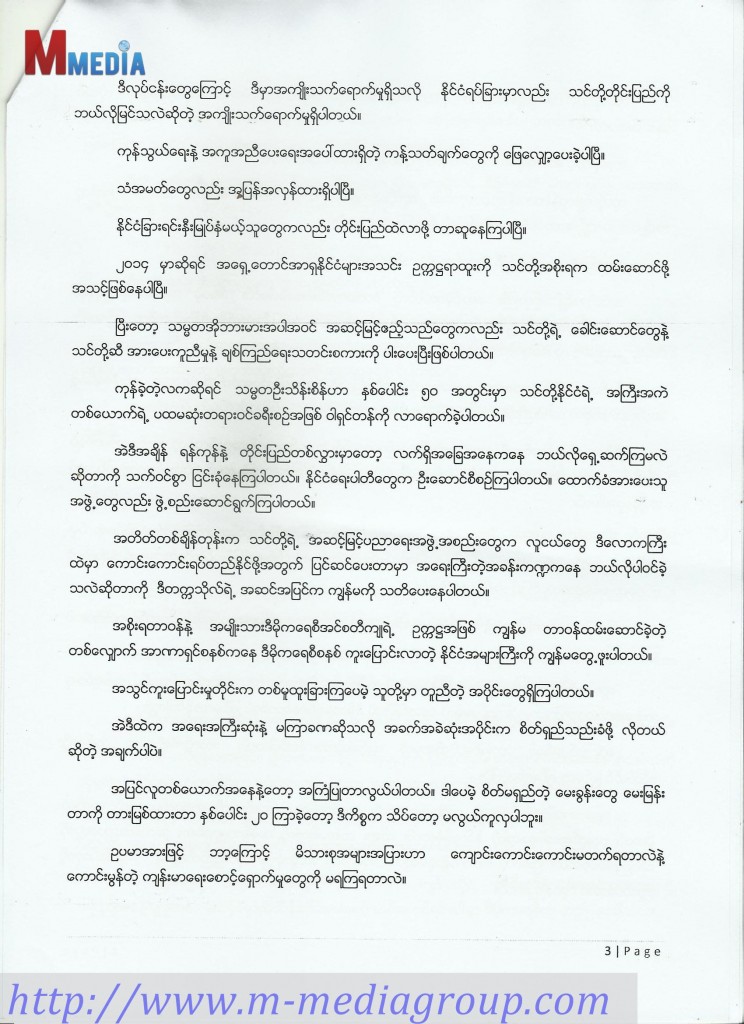 MMEDIA
ဒီလုပ်ငန်းတွေကြောင့် ဒီမှာအကျိုးသက်ရောက်မှုရှိသလို နိုင်ငံရပ်ခြားမှာလည်း သင်တို့တိုင်းပြည်ကို
ဘယ်လိုမြင်သလဲဆိုတဲ့ အကျိုးသက်ရောက်မှုရှိပါတယ်။
ကုန်သွယ်ရေးနဲ့ အကူအညီပေးရေးအပေါ်ထားရှိတဲ့ ကန့်သတ်ချက်တွေကို ဖြေလျှော့ပေးခဲ့ပါပြီ။
သံအမတ်တွေလည်း အပြန်အလှန်ထားရှိပါပြီ။
နိုင်ငံခြားရင်းနှီးမြှုပ်နှံမယ့်သူတွေကလည်း တိုင်းပြည်ထဲလာဖို့ တာဆူနေကြပါပြီ။
၂၀၁၄ မှာဆိုရင် အရှေ့တောင်အာရှနိုင်ငံများအသင်း ဥက္ကဋ္ဌရာထူးကို သင်တို့အစိုးရက ထမ်းဆောင်ဖို့
အသင့်ဖြစ်နေပါပြီ။
ပြီးတော့ သမ္မတအိုဘားမားအပါအဝင် အဆင့်မြင့်ဧည့်သည်တွေကလည်း သင်တို့ရဲ့ ခေါင်းဆောင်တွေနဲ့
သင်တို့ဆီ အားပေးကူညီမှုနဲ့ ချစ်ကြည်ရေးသတင်းစကားကို ပါးပေးပြီးဖြစ်ပါတယ်။
ကုန်ခဲ့တဲ့လကဆိုရင် သမ္မတဦးသိန်းစိန်ဟာ နှစ်ပေါင်း ၅၀ အတွင်းမှာ သင်တို့နိုင်ငံရဲ့ အကြီးအကဲ
တစ်ယောက်ရဲ့ ပထမဆုံးတရားဝင်ခရီးစဉ်အဖြစ် ဝါရှင်တန်ကို လာရောက်ခဲ့ပါတယ်။
အဲဒီအချိန် ရန်ကုန်နဲ့ တိုင်းပြည်တစ်လွှားမှာတော့ လက်ရှိအခြေအနေကနေ ဘယ်လိုရှေ့ဆက်ကြမလဲ
ဆိုတာကို သက်ဝင်စွာ ငြင်းခုံနေကြပါတယ်။ နိုင်ငံရေးပါတီတွေက ဦးဆောင်စီစဉ်ကြပါတယ်။ ထောက်ခံအားပေးသူ
အဖွဲ့တွေလည်း ဖွဲ့စည်းဆောင်ရွက်ကြပါတယ်။
အတိတ်တစ်ချိန်တုန်းက သင်တို့ရဲ့ အဆင့်မြင့်ပညာရေးအဖွဲ့အစည်းတွေက လူငယ်တွေ ဒီလောကကြီး
ထဲမှာ ကောင်းကောင်းရပ်တည်နိုင်ဖို့အတွက် ပြင်ဆင်ပေးတာမှာ အရေးကြီးတဲ့အခန်းကဏ္ဍကနေ ဘယ်လိုပါဝင်ခဲ့
သလဲဆိုတာကို ဒီတက္ကသိုလ်ရဲ့ အဆင်အပြင်က ကျွန်မကို သတိပေးနေပါတယ်။
အစိုးရတာဝန်နဲ့ အမျိုးသားဒီမိုကရေစီအင်စတီကျုရဲ့ ဥက္ကဋ္ဌအဖြစ် ကျွန်မ တာဝန်ထမ်းဆောင်ခဲ့တဲ့
တစ်လျှောက် အာဏာရှင်စနစ်ကနေ ဒီမိုကရေစီစနစ် ကူးပြောင်းလာတဲ့ နိုင်ငံအများကြီးကို ကျွန်မတွေ့ဖူးပါတယ်။
အသွင်ကူးပြောင်းမှုတိုင်းက တစ်မူထူးခြားကြပေမဲ့ သူတို့မှာ တူညီတဲ့ အပိုင်းတွေရှိကြပါတယ်။
အဲဒီထဲက အရေးအကြီးဆုံးနဲ့ မကြာခဏဆိုသလို အခက်အခဲဆုံးအပိုင်းက စိတ်ရှည်သည်းခံဖို့ လိုတယ်
ဆိုတဲ့ အချက်ပါပဲ။
အပြင်လူတစ်ယောက်အနေနဲ့တော့ အကြံပြုတာလွယ်ပါတယ်။ ဒါပေမဲ့ စိတ်မရှည်တဲ့ မေးခွန်းတွေ မေးမြန်း
တာကို တားမြစ်ထားတာ နှစ်ပေါင်း ၂၀ ကြာခဲ့တော့ ဒီကိစ္စက သိပ်တော့ မလွယ်ကူလှပါဘူး။
ဥပမာအားဖြင့် ဘာ့ကြောင့် မိသားစုအများအပြားဟာ ကျောင်းကောင်းကောင်းမတက်ရတာလဲနဲ့
ကောင်းမွန်တဲ့ ကျန်းမာရေးစောင့်ရှောက်မှုတွေကို မရကြရတာလဲ။
3 | Page
http://www.m-mediagroup.com